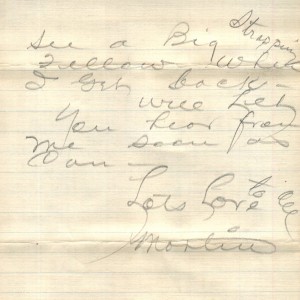 see a Big Strappin
Fellow when
I get back –
will let
You hear from
me soon as
Can –
Lots Love to
Martin